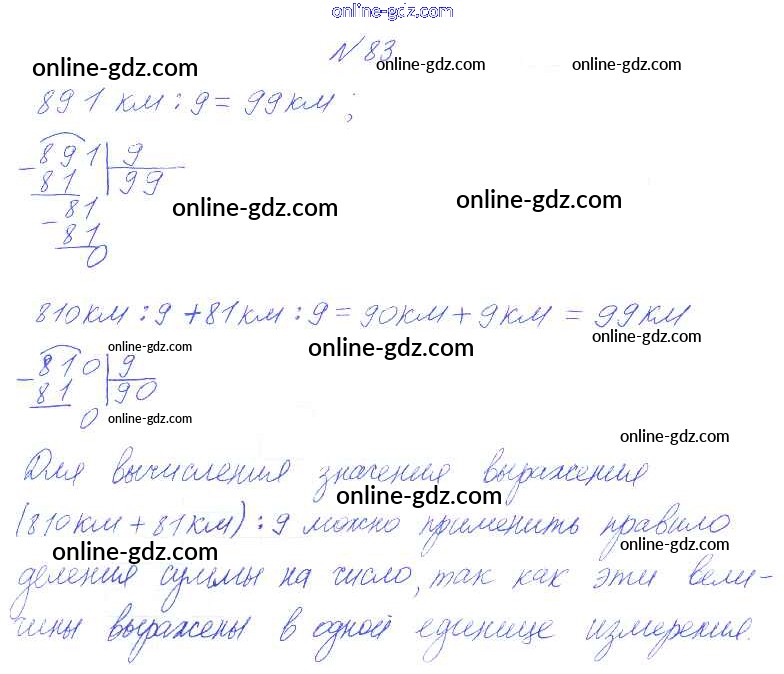 online-gdz.com
N 83
online-gdz.com online-gdz.com online-gdz.com
891 км : 9 = 99 км;
891 9
81 99
81
81
0
online-gdz.com online-gdz.com
810 км : 9 + 81 км : 9 = 90 км + 9 км = 99 км
online-gdz.com online-gdz.com online-gdz.com
810 9
81 90
0
online-gdz.com
online-gdz.com
Для вычисления значения выражения
online-gdz.com
(810 км + 81 км) : 9 можно применить правило
online-gdz.com online-gdz.com
деления суммы на число, так как эти вели-
чины выражены в одной единице измерения.